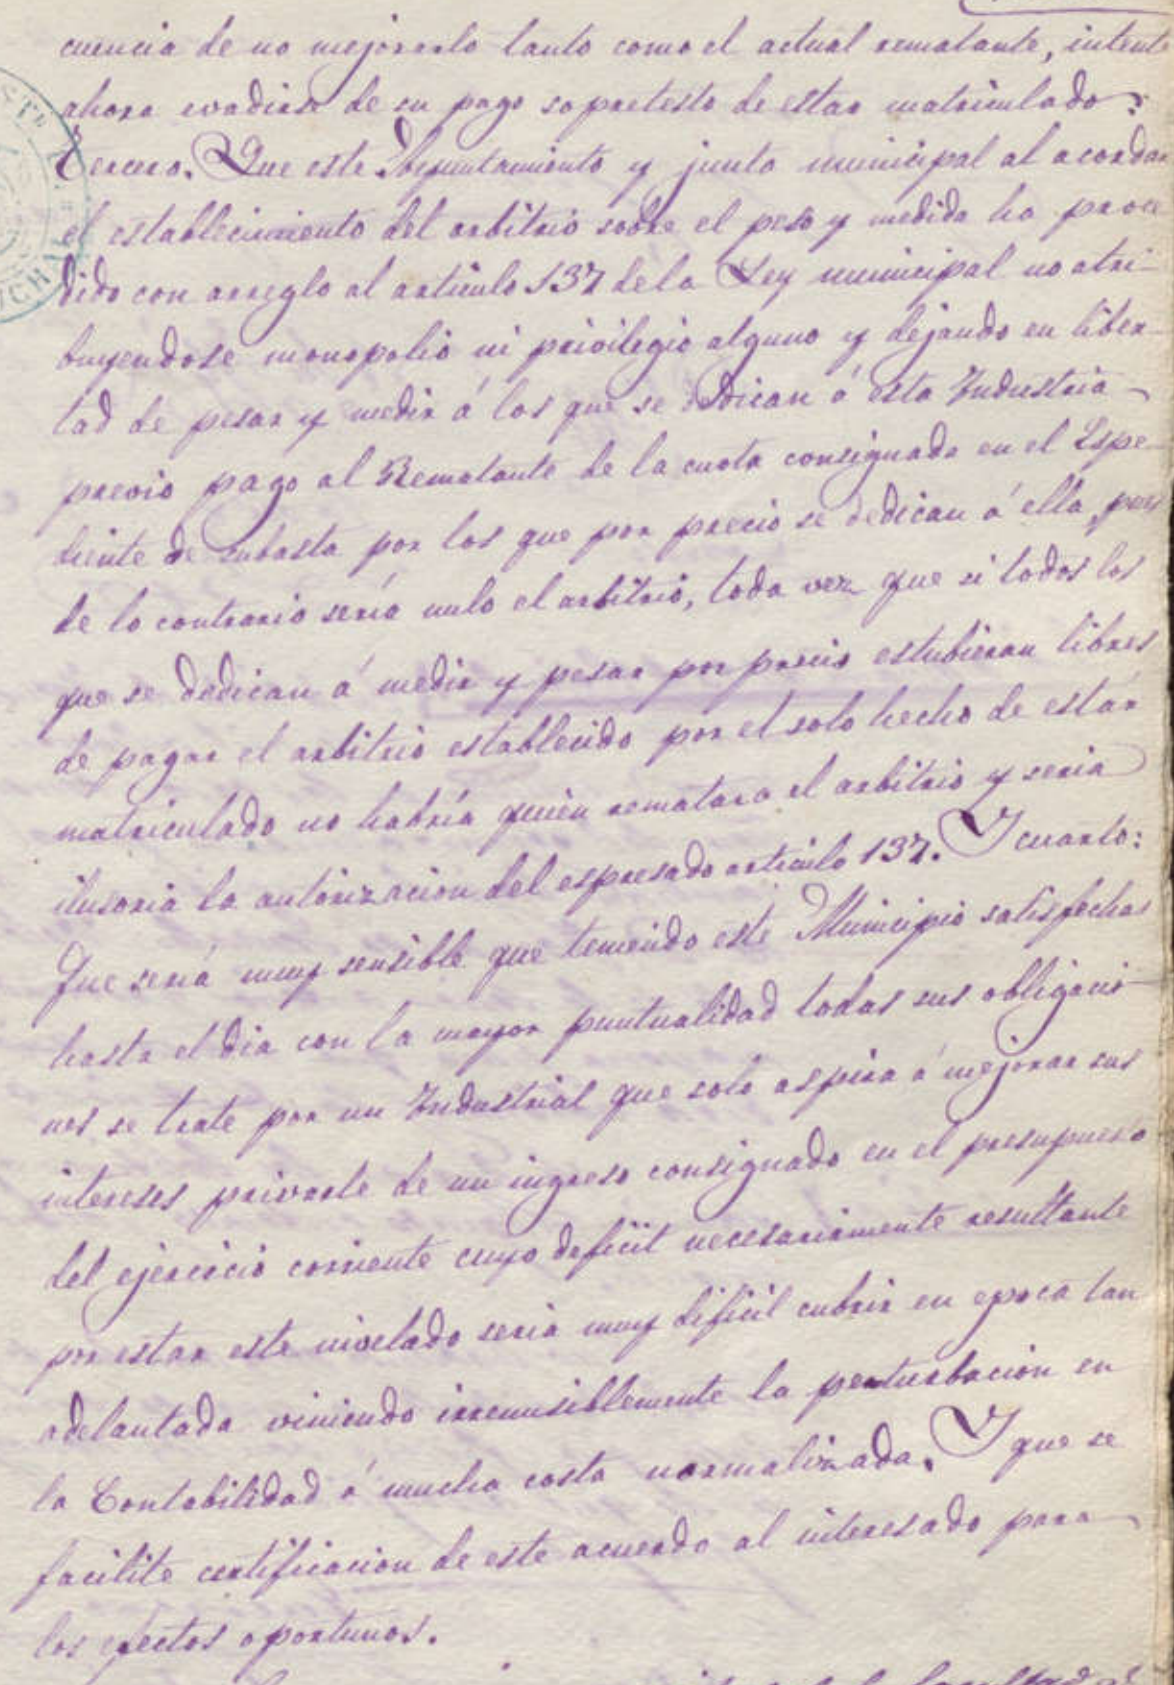 cuencia de no mejorarlo tanto como el actual rematante, intent
ahora evadirse de su pago so pretesto de estar matriculado:
Tercero. Que este Ayuntamiento y junta municipal al acordar
el establecimiento del arbitrio sobre el peso y medida ha proce
dido con arreglo al artículo 137 de la Ley municipal no atri-
buyendose monopolio ni privilegio alguno y dejando en liber-
tad de pesar y medir á los que se dedican á esta Industria
previo pago al Rematante de la cuota consignada en el Espe-
diente de subasta por los que por precio se dedican á ella, pues
de lo contrario sería nulo el arbitrio, toda vez que si todos los
que se dedican á medir y pesar por precio estubieran libres
de pagar el arbitrio establecido por el solo hecho de estár
matriculado no habría quien rematara el arbitrio y seria
ilusoria la autorizacion del espresado articulo 137. Y cuarto:
Que será muy sensible que teniendo este Municipio satisfechas
hasta el dia con la mayor puntualidad todas sus obligacio-
nes se trate por un Industrial que solo aspira á mejorar sus
intereses privarle de un ingreso consignado en el presupuesto
del ejercicio corriente cuyo deficit necesariamente resultante
por estar este nivelado seria muy dificil cubrir en epoca tan
adelantada viniendo irremisiblemente la perturbacion en
la Contabilidad á mucha costa normalizada. Y que se
facilite certificacion de este acuerdo al interesado para
los efectos oportunos.